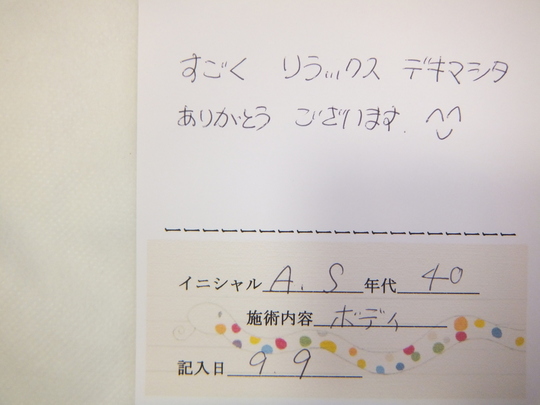 すごく リラックス デキマシタ
ありがとう ございます. ^^
イニシャル A.S 年代 40
施術内容 ボディ
記入日 9.9